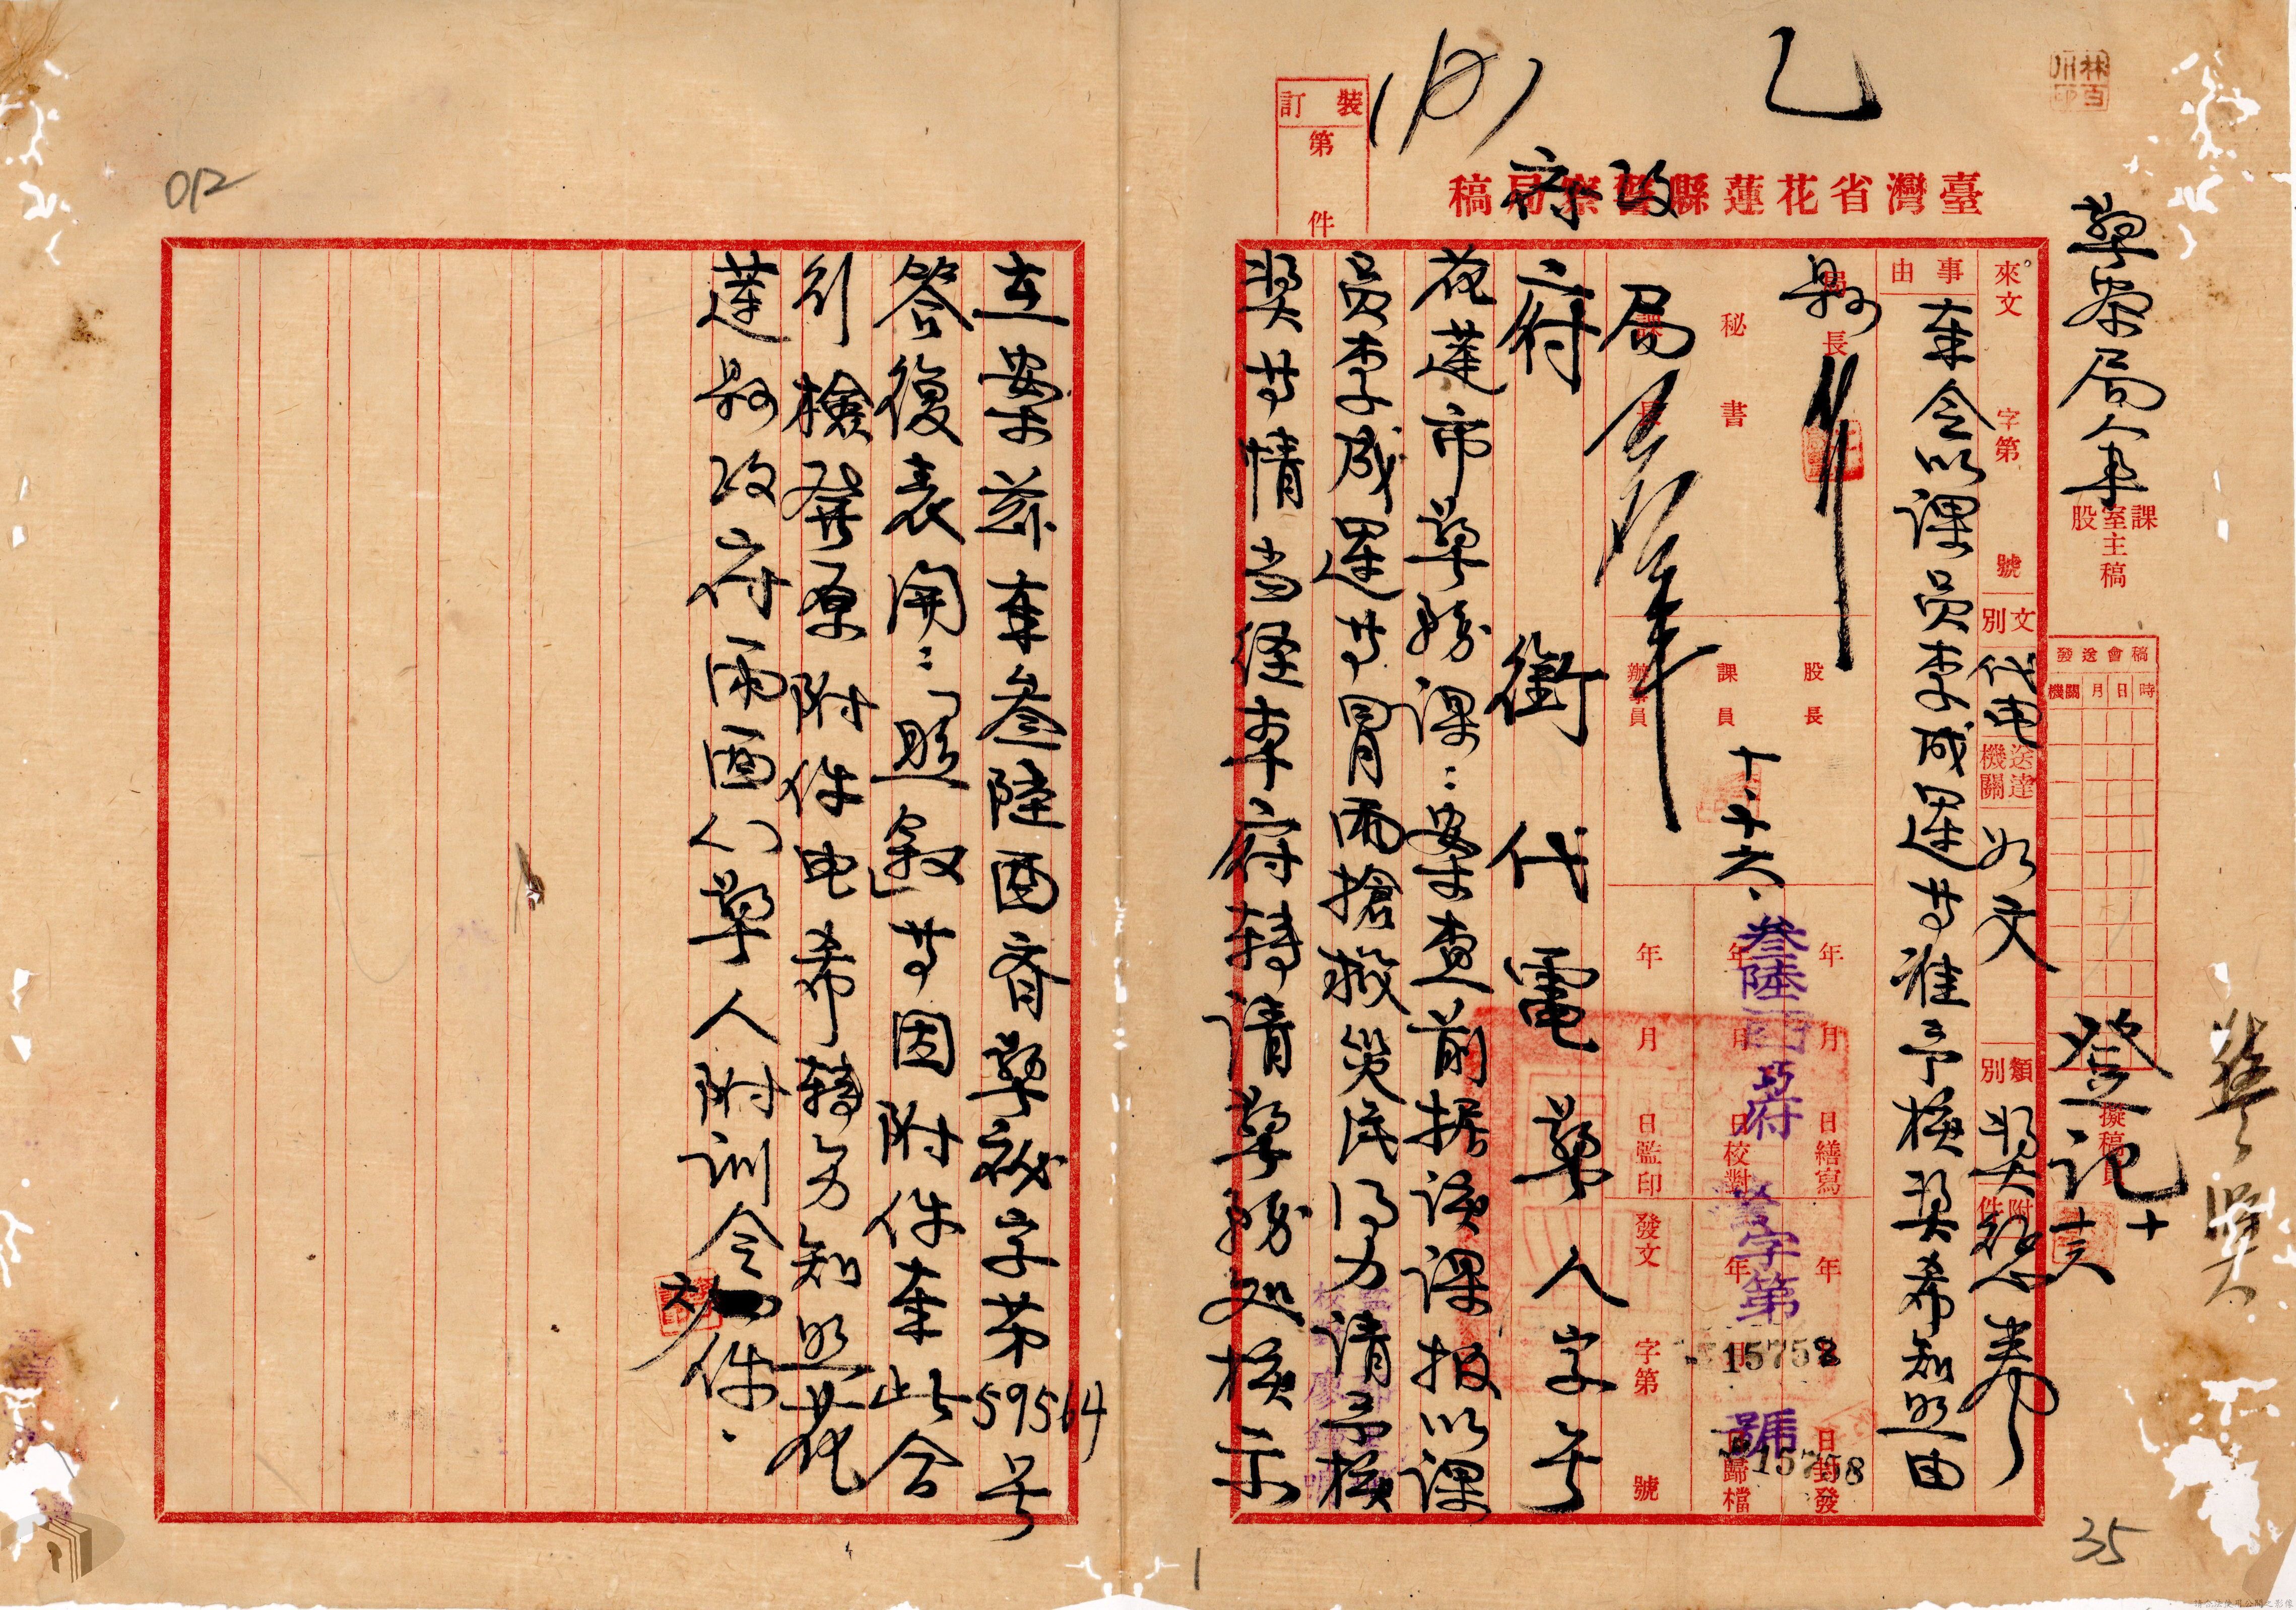 乙
臺灣省花蓮縣警察局稿
政府
裝訂
第 件
警察局人事
課室股主稿
稿會送發
時日月機關
登記
十
十六
擬稿員
來文 字第 號
文別 代电
送達機關 如文
類別 奬懲
附件
事由
奉令以課員李成運等准予核奬希知照由
縣長
局長
秘書
課長
股長
課員
辦事員
十、十六、
年 月 日繕寫
年 月 日校對
年 月 日監印
年 月 日封發
年 月 日歸檔
發文 字第 號
叁陸酉巧府警字第 15758 號
15758
府銜代電 警人字 号
花蓮市警務課：案查前據該課报以課
員李成運等冒雨搶救災民得力请予核
奖等情当经本府轉请警務処核示
在案茲奉叁陸酉齊警祕字第59564号
答復表開：「照敘」等因附件奉此合
行檢發原附件电希轉知照花
蓮縣政府酉 警人附訓令 件．
012
35
1